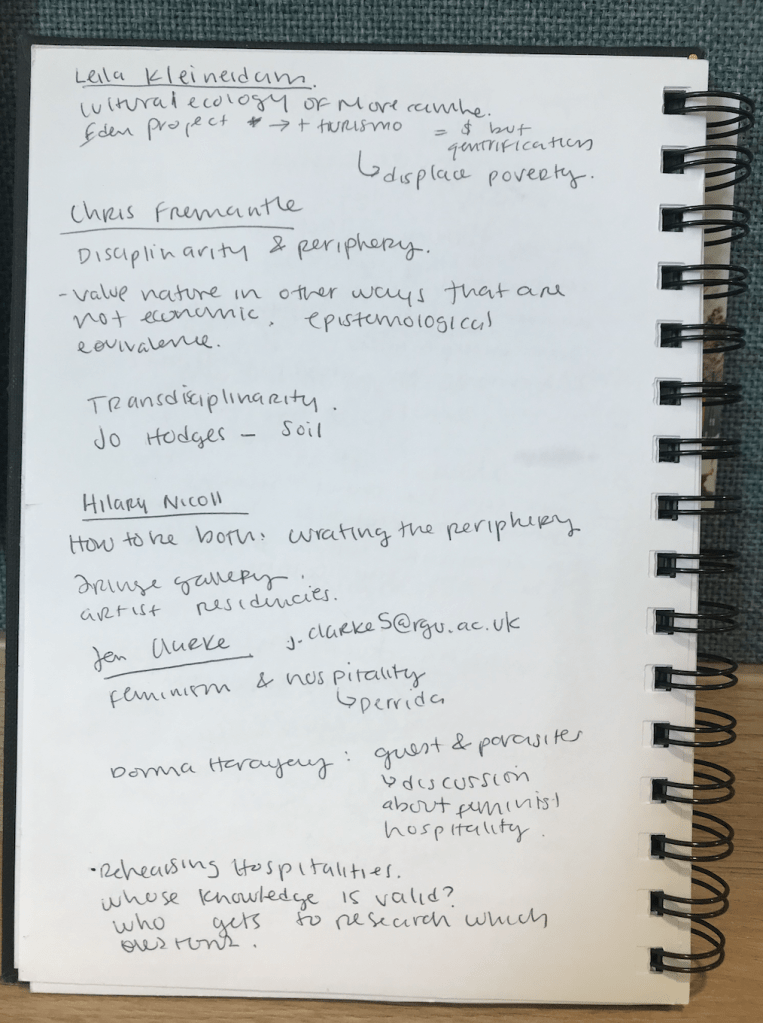 Leila Kleineidam.
Cultural ecology of Morecambe.
Eden project → + turismo = $ but
gentrification
↳ displace poverty.
Chris Fremantle
Disciplinarity & periphery.
- value nature in other ways that are
not economic. epistemological
equivalence.
Transdisciplinarity.
Jo Hodges – Soil
Hilary Nicoll
How to be both: curating the periphery
Fringe gallery.
artist residencies.
Jen Clarke j.clarke5@rgu.ac.uk
feminism & hospitality
↳ Derrida
Donna Haraway : guest & parasites
↳ discussion
about feminist
hospitality.
· Rehearsing Hospitalities.
whose knowledge is valid?
who gets to research which
questions.